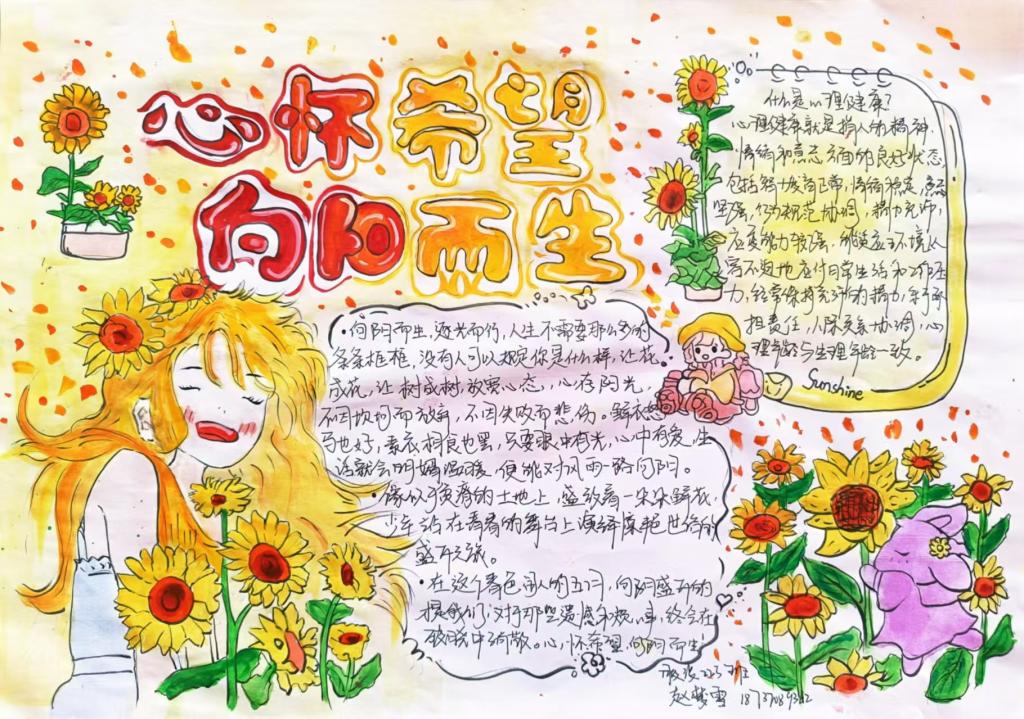 心怀希望
向阳而生
什么是心理健康?
心理健康就是指人的精神、
情绪和意志方面的良好状态
包括智力发育正常,情绪稳定,意志
坚强,行为规范协调,精力充沛,
应变能力较强,能适应环境,从
容不迫地应付日常生活和工作压
力,经常保持充沛的精力,乐于承
担责任,人际关系协调,心
理年龄与生理年龄一致。
Sunshine
·向阳而生,逐光而行,人生不需要那么多的
条条框框,没有人可以规定你是什么样,让花
成花,让树成树,放宽心态,心存阳光,
不因坎坷而放弃,不因失败而悲伤。鲜衣怒
马也好,素衣粗食也罢,只要眼中有光,心中有爱,生
活就会明媚温暖,便能对风雨一路向阳。
的土地上,盛放着一朵朵鲜花,
少年站在青春的舞台上演绎
盛开之旅。
·在这个春色 人的五月,向阳盛开的
我们,对于那些遗憾和 ,终会在
中消散。心怀希望,向阳而生
223班
赵梦雪